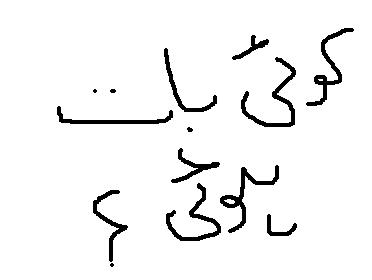 کوئی بات
ہوئی ؟